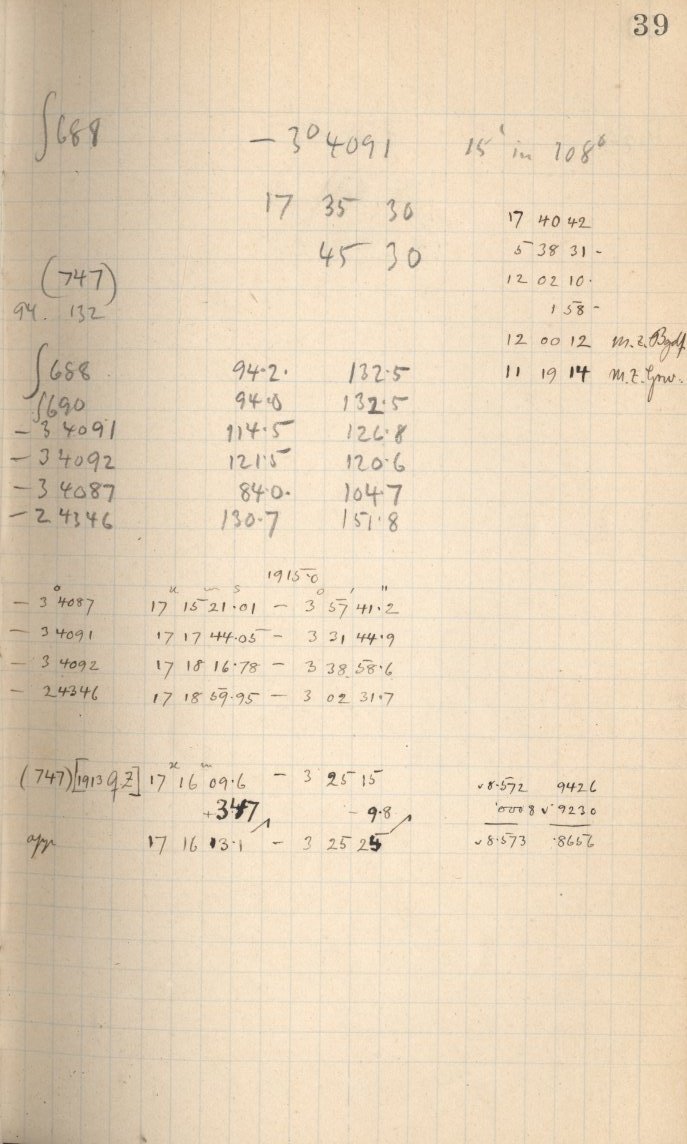 39
∫688 − 3° 4091 15' in 108
17 35 30
45 30
17 40 42
5 38 31 -
12 02 10.
1 58 -
12 00 12 M.Z. Bgdf
11 19 14 M.Z. Grw.
(747)
94. 132
∫688 94.2. 132.5
∫690 94.0 132.5
− 3 4091 114.5 126.8
− 3 4092 121.5 120.6
− 3 4087 84.0. 104.7
− 2 4346 130.7 151.8
1915.0
− 3° 4087 17h 15m 21.01s − 3° 57' 41.2"
− 3 4091 17 17 44.05 − 3 31 44.9
− 3 4092 17 18 16.78 − 3 38 58.6
− 2 4346 17 18 59.95 − 3 02 31.7
(747) [1913 QZ] 17h 16m 09.6 − 3 25 15
+ 347 − 9.8
app 17 16 13.1 − 3 25 25
8.572 9426
0008 9230
8.573 .8656